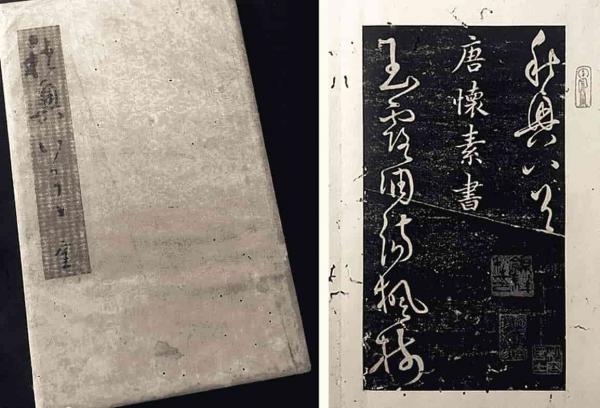 秋興八首
秋興八首
唐懷素書
玉露凋傷楓樹